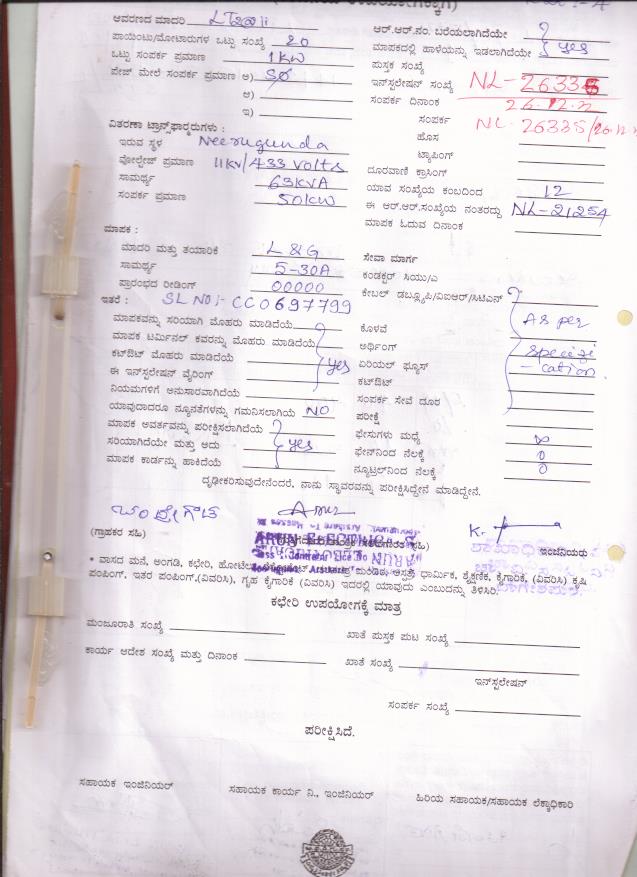 ಆವರಣದ ಮಾದರಿ LT
ಪಾಯಿಂಟು/ಮೋಟಾರುಗಳ ಒಟ್ಟು ಸಂಖ್ಯೆ 20
ಒಟ್ಟು ಸಂಪರ್ಕ ಪ್ರಮಾಣ 1KW
ಪೇಜ್ ಮೇಲೆ ಸಂಪರ್ಕ ಪ್ರಮಾಣ ಅ)
ಆ)
ಇ)
ವಿತರಣಾ ಟ್ರಾನ್ಸ್‌ಫಾರ್ಮರುಗಳು :
ಇರುವ ಸ್ಥಳ Neerugunda
ವೋಲ್ಟೇಜ್ ಪ್ರಮಾಣ 11KV/433 Volts
ಸಾಮರ್ಥ್ಯ 63KVA
ಸಂಪರ್ಕ ಪ್ರಮಾಣ 50KW
ಆರ್.ಆರ್.ನಂ. ಬರೆಯಲಾಗಿದೆಯೇ
ಮಾಪಕದಲ್ಲಿ ಹಾಳೆಯನ್ನು ಇಡಲಾಗಿದೆಯೇ yes
ಪುಸ್ತಕ ಸಂಖ್ಯೆ
ಇನ್‌ಸ್ಟಲೇಷನ್ ಸಂಖ್ಯೆ NL-26335
ಸಂಪರ್ಕ ದಿನಾಂಕ 26.12.
ಸಂಪರ್ಕ NL-26335/26.12.
ಹೊಸ
ಟ್ಯಾಪಿಂಗ್
ದೂರವಾಣಿ ಕ್ರಾಸಿಂಗ್
ಯಾವ ಸಂಖ್ಯೆಯ ಕಂಬದಿಂದ 12
ಈ ಆರ್.ಆರ್.ಸಂಖ್ಯೆಯ ನಂತರದ್ದು NL-21254
ಮಾಪಕ ಓದುವ ದಿನಾಂಕ
ಮಾಪಕ :
ಮಾದರಿ ಮತ್ತು ತಯಾರಿಕೆ L&G
ಸಾಮರ್ಥ್ಯ 5-30A
ಪ್ರಾರಂಭದ ರೀಡಿಂಗ್ 00000
ಇತರೆ : SL NO:- CC0697799
ಮಾಪಕವನ್ನು ಸರಿಯಾಗಿ ಮೊಹರು ಮಾಡಿದೆಯೆ
ಮಾಪಕ ಟರ್ಮಿನಲ್ ಕವರನ್ನು ಮೊಹರು ಮಾಡಿದೆಯೆ
ಕಟ್‌ಔಟ್ ಮೊಹರು ಮಾಡಿದೆಯೆ yes
ಈ ಇನ್‌ಸ್ಟಲೇಷನ್ ವೈರಿಂಗ್
ನಿಯಮಗಳಿಗೆ ಅನುಸಾರವಾಗಿದೆಯೆ
ಯಾವುದಾದರೂ ನ್ಯೂನತೆಗಳನ್ನು ಗಮನಿಸಲಾಗಿಯೆ NO
ಮಾಪಕ ಅವರ್ತವನ್ನು ಪರೀಕ್ಷಿಸಲಾಗಿದೆಯೆ
ಸರಿಯಾಗಿದೆಯೇ ಮತ್ತು ಅದು yes
ಮಾಪಕ ಕಾರ್ಡನ್ನು ಹಾಕಿದೆಯೆ
ಸೇವಾ ಮಾರ್ಗ
ಕಂಡಕ್ಟರ್ ಸಿಯು/ಎ
ಕೇಬಲ್ ಡಬ್ಲ್ಯೂಪಿ/ವಿಐಆರ್/ಸಿಟಿಎಸ್
ಕೊಳವೆ As per
ಅರ್ಥಿಂಗ್ specifi
ಏರಿಯಲ್ ಫ್ಯೂಸ್ -cation.
ಕಟ್‌ಔಟ್
ಸಂಪರ್ಕ ಸೇವೆ ದೂರ
ಪರೀಕ್ಷೆ
ಫೇಸುಗಳು ಮಧ್ಯೆ ∞
ಫೇಸ್‌ನಿಂದ ನೆಲಕ್ಕೆ 0
ನ್ಯೂಟ್ರಲ್‌ನಿಂದ ನೆಲಕ್ಕೆ 0
ದೃಢೀಕರಿಸುವುದೇನೆಂದರೆ, ನಾನು ಸ್ಥಾವರವನ್ನು ಪರೀಕ್ಷಿಸಿದ್ದೇನೆ ಮಾಡಿದ್ದೇನೆ.
(ಗ್ರಾಹಕರ ಸಹಿ)
ARUN ELECTRICALS
ಇಂಜಿನಿಯರು
* ವಾಸದ ಮನೆ, ಅಂಗಡಿ, ಕಛೇರಿ, ಹೋಟೆಲು, ಧಾರ್ಮಿಕ, ಶೈಕ್ಷಣಿಕ, ಕೈಗಾರಿಕೆ, (ವಿವರಿಸಿ) ಕೃಷಿ
ಪಂಪಿಂಗ್, ಇತರ ಪಂಪಿಂಗ್,(ವಿವರಿಸಿ), ಗೃಹ ಕೈಗಾರಿಕೆ (ವಿವರಿಸಿ) ಇದರಲ್ಲಿ ಯಾವುದು ಎಂಬುದನ್ನು ತಿಳಿಸಿರಿ.
ಕಛೇರಿ ಉಪಯೋಗಕ್ಕೆ ಮಾತ್ರ
ಮಂಜೂರಾತಿ ಸಂಖ್ಯೆ
ಖಾತೆ ಪುಸ್ತಕ ಪುಟ ಸಂಖ್ಯೆ
ಕಾರ್ಯ ಆದೇಶ ಸಂಖ್ಯೆ ಮತ್ತು ದಿನಾಂಕ
ಖಾತೆ ಸಂಖ್ಯೆ
ಇನ್‌ಸ್ಟಲೇಷನ್
ಸಂಪರ್ಕ ಸಂಖ್ಯೆ
ಪರೀಕ್ಷಿಸಿದೆ.
ಸಹಾಯಕ ಇಂಜಿನಿಯರ್
ಸಹಾಯಕ ಕಾರ್ಯ ನಿ., ಇಂಜಿನಿಯರ್
ಹಿರಿಯ ಸಹಾಯಕ/ಸಹಾಯಕ ಲೆಕ್ಕಾಧಿಕಾರಿ